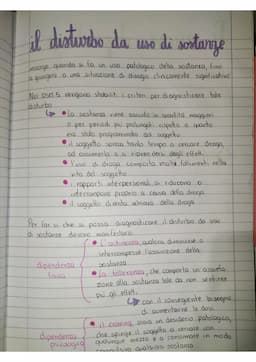 il disturbo da uso di sostanze
insorge quando si fa un uso patologico della sostanza, fino
a giungere a una situazione di disagio clinicamente significativo
Nel DSM 5 vengono stabiliti i criteri per diagnosticare tale
disturbo
• la sostanza viene assunta in quantità maggiori
o per periodi più prolungati rispetto a quanto
era stato programmato dal soggetto
• il soggetto spreca molto tempo a cercare droga,
ad assumerla e a riprendersi dagli effetti
• l'uso di droga comporta molti fallimenti nella
vita del soggetto
• i rapporti interpersonali si riducono o
interrompono proprio a causa della droga
• il soggetto diventa schiavo della droga
Per far sì che si possa diagnosticare il disturbo da uso
di sostanze devono manifestarsi
dipendenza fisica
• L'astinenza, qualora diminuisse o
interrompesse l'assunzione della
sostanza
• La tolleranza, che comporta un assuefa
zione alla sostanza tale da non sentirne
più gli effetti,
con il conseguente bisogno
di aumentarne la dose
dipendenza psicologica
• il craving, ossia un desiderio patologico,
che spinge il soggetto a cercare con
qualunque mezzo e a consumare in modo
compulsivo qualsiasi sostanza